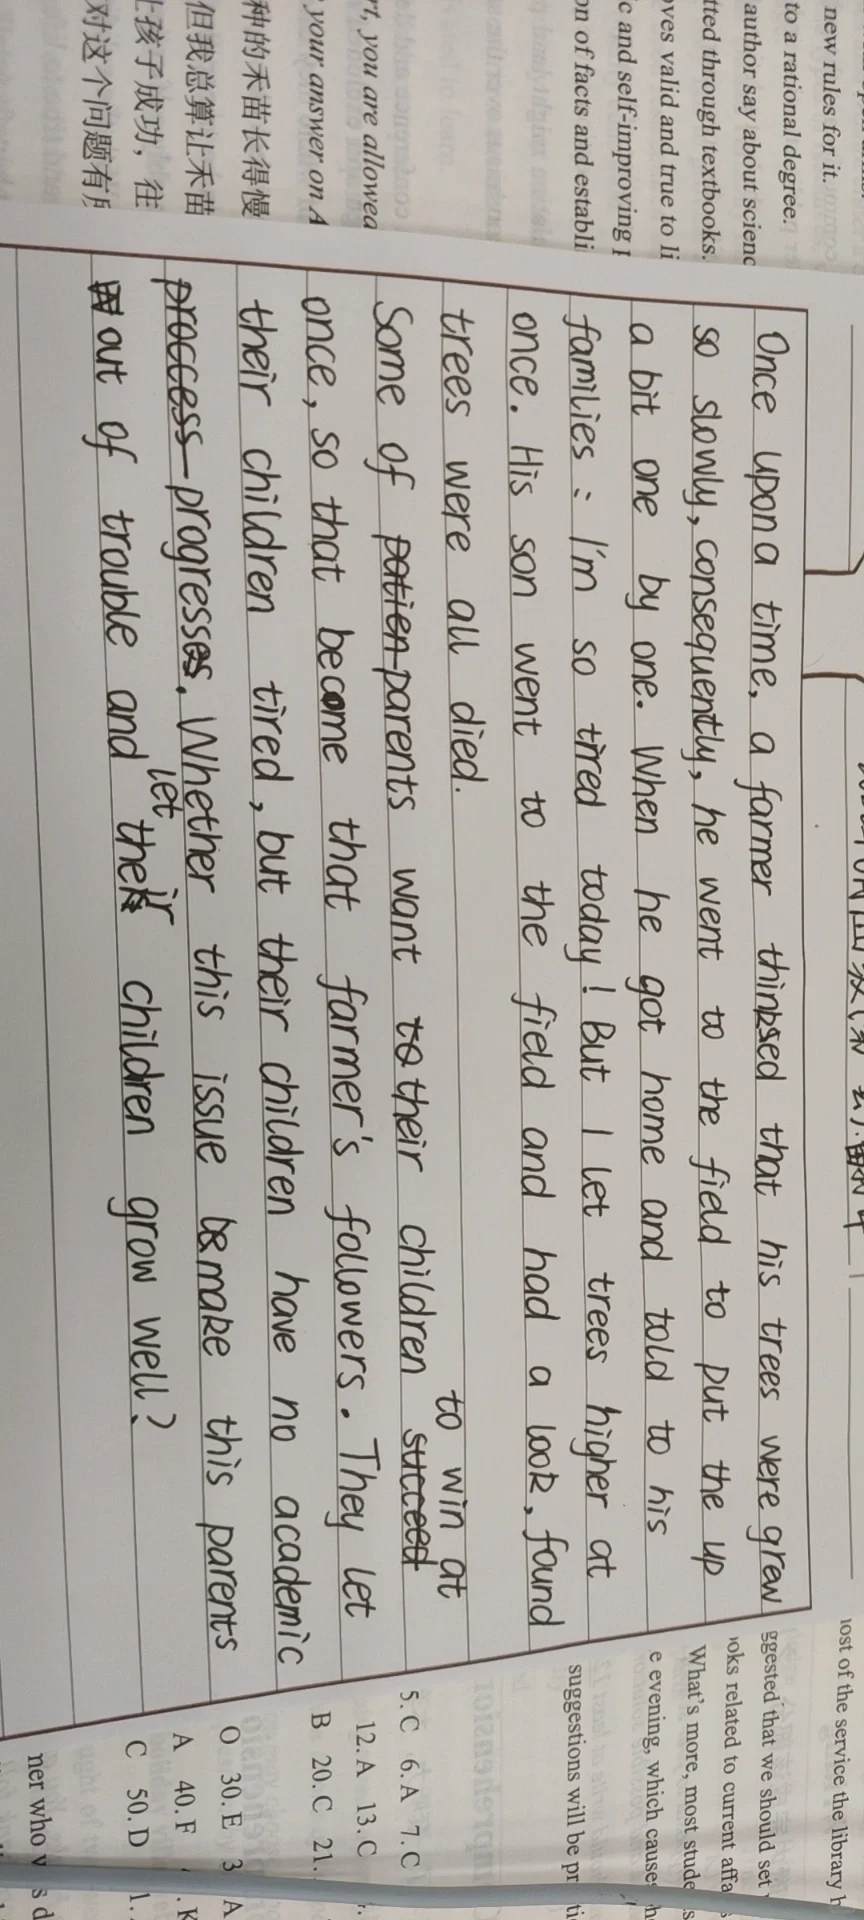 new rules for it.
to a rational degree.
author say about scienc
tted through textbooks.
oves valid and true to li
c and self-improving
on of facts and establi
rt, you are allowed
your answer on A
种的禾苗长得慢
但我总算让禾苗
让孩子成功，往
对这个问题有
Once upon a time, a farmer thinksed that his trees were grew
so slowly, consequently, he went to the field to put the up
a bit one by one. When he got home and told to his
families : I'm so tired today! But I let trees higher at
once. His son went to the field and had a look, found
trees were all died.
Some of patien parents want to their children succeed to win at
once, so that become that farmer's followers. They let
their children tired, but their children have no academic
proccess progresses. Whether this issue make this parents
out of trouble and let their children grow well?
nost of the service the library h
ggested that we should set
oks related to current affa
What's more, most stude s
e evening, which cause he
suggestions will be pr ti
5. C 6. A 7. C
12. A 13. C
B 20. C 21.
O 30. E 3 A
A 40. F . K
C 50. D 1.
ner who v s d